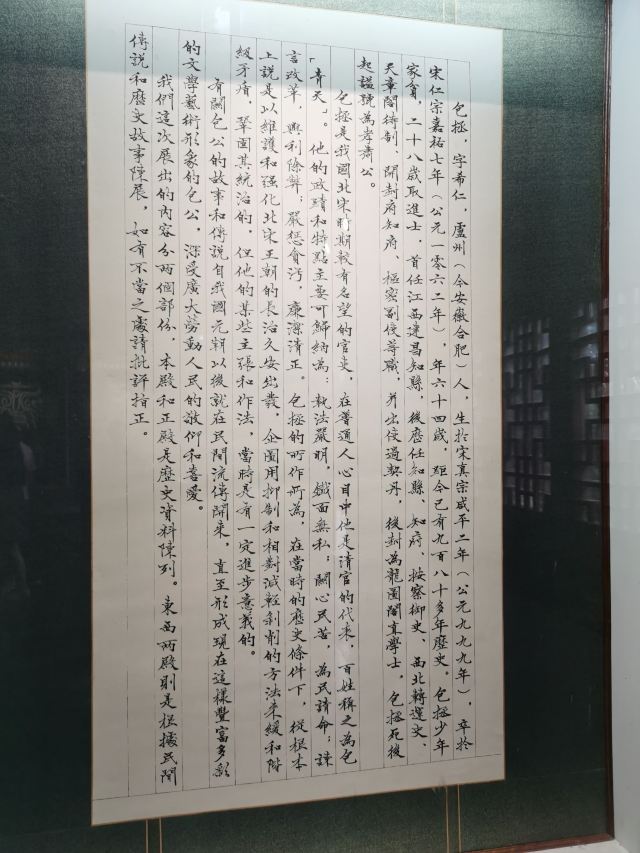 包拯，字希仁，廬州（今安徽合肥）人，生於宋真宗咸平二年（公元九九九年），卒於
宋仁宗嘉祐七年（公元一零六二年），年六十四歲，距今已有九百八十多年歷史。包拯少年
家貧，二十八歲取進士，首任江西建昌知縣，後歷任知縣、知府、按察御史、西北轉運史、
天章閣待制；開封府知府、樞密副使等職，并出使過契丹，後封為龍圖閣直學士，包拯死後
起謚號為孝肅公。
包拯是我國北宋時期較有名望的官吏，在普通人心目中他是清官的代表，百姓稱之為包
「青天」。他的政蹟和特點主要可歸納為：執法嚴明，鐵面無私；關心民苦，為民請命；諫
言改革，興利除弊；嚴惩貪污，廉潔清正。包拯的所作所為，在當時的歷史條件下，從根本
上說是以維護和强化北宋王朝的長治久安出發，企圖用抑制和相對減輕剝削的方法來緩和階
級矛盾，鞏固其統治的，但他的某些主張和作法，當時是有一定進步意義的。
有關包公的故事和傳說自我國元朝以後就在民間流傳開來，直至形成現在這樣豐富多彩
的文學藝術形象的包公，深受廣大勞動人民的敬仰和喜愛。
我們這次展出的內容分两個部份，本殿和正殿是歷史資料陳列。東西两殿則是根據民間
傳說和歷史故事陳展，如有不當之處請批評指正。